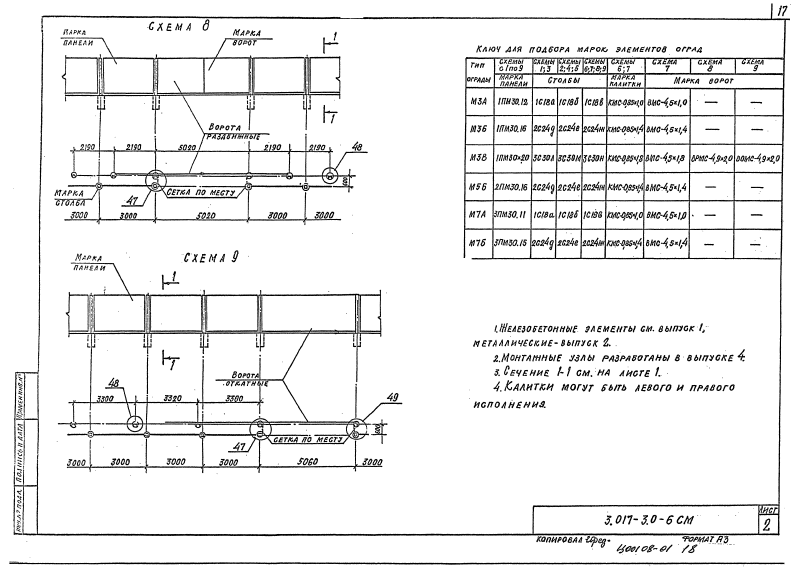 17
СХЕМА 8
МАРКА ПАНЕЛИ
МАРКА ВОРОТ
1
1
ВОРОТА РАЗДВИЖНЫЕ
2190 2190 5020 2190 2190
48
600
МАРКА СТОЛБА
47
СЕТКА ПО МЕСТУ
3000 3000 5020 3000 3000
СХЕМА 9
МАРКА ПАНЕЛИ
1
1
ВОРОТА ОТКАТНЫЕ
48
3300 3320 3380
49
47
СЕТКА ПО МЕСТУ
3000 3000 3000 3000 5060 3000
КЛЮЧ ДЛЯ ПОДБОРА МАРОК ЭЛЕМЕНТОВ ОГРАД
ТИП ОГРАДЫ
СХЕМЫ С 1 ПО 9
СХЕМЫ 1;3
СХЕМЫ 2;4;5
СХЕМЫ 6;7;8;9
СХЕМЫ 6;7
СХЕМА 7
СХЕМА 8
СХЕМА 9
МАРКА ПАНЕЛИ
СТОЛБЫ
МАРКА КАЛИТКИ
МАРКА ВОРОТ
М3А 1ПМ30.12 1С18а 1С18б 1С18в КМС-0,85×1,0 ВМС-4,5×1,0 — —
М3Б 1ПМ30.16 2С24д 2С24е 2С24и КМС-0,85×1,4 ВМС-4,5×1,4 — —
М3В 1ПМ30×20 КМС-0,85×1,8 ВМС-4,5×1,8 ВРМС-4,9×2,0 ВОМС-4,9×2,0
М5Б 2ПМ30.16 2С24д 2С24е 2С24и КМС-0,85×1,4 ВМС-4,5×1,4 — —
М7А 3ПМ30.11 1С18а 1С18б 1С18в КМС-0,85×1,0 ВМС-4,5×1,0 — —
М7Б 3ПМ30.15 2С24д 2С24е 2С24и КМС-0,85×1,4 ВМС-4,5×1,4 — —
1. ЖЕЛЕЗОБЕТОННЫЕ ЭЛЕМЕНТЫ СМ. ВЫПУСК 1,
МЕТАЛЛИЧЕСКИЕ - ВЫПУСК 2.
2. МОНТАЖНЫЕ УЗЛЫ РАЗРАБОТАНЫ В ВЫПУСКЕ 4.
3. СЕЧЕНИЕ 1-1 СМ. НА ЛИСТЕ 1.
4. КАЛИТКИ МОГУТ БЫТЬ ЛЕВОГО И ПРАВОГО
ИСПОЛНЕНИЯ.
ИНВ.№ ПОДЛ. ПОДПИСЬ И ДАТА ВЗАМЕН ИНВ.№
3.017-3.0-6 СМ
ЛИСТ
2
КОПИРОВАЛ
ФОРМАТ А3
Ц00108-01 18